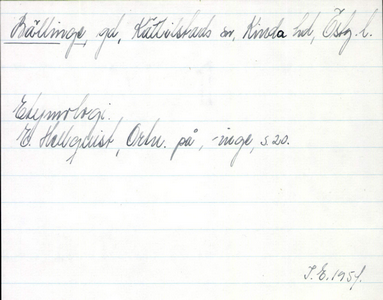 Bällinge, gd, Kättilstads sn, Kinda hd, Östg. l.
Etymologi.
E. Hellquist, Ortn. på -inge, s. 20.
I. E. 1951.